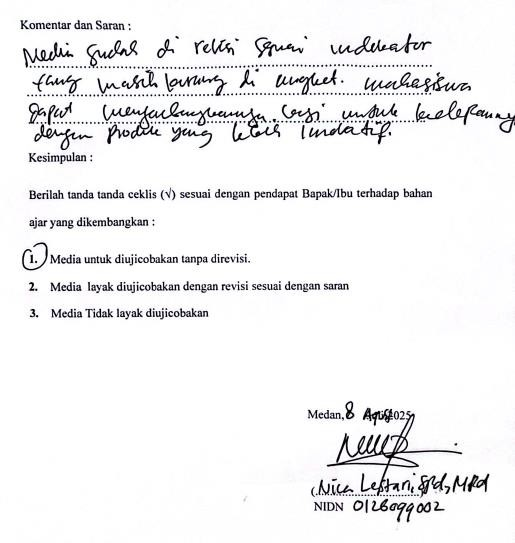 Komentar dan Saran :
Media sudah di revisi sesuai indikator
yang masih kurang di angket. mahasiswa
dapat mengembangkannya lagi untuk kedepannya
dengan produk yang lebih inovatif.
Kesimpulan :
Berilah tanda tanda ceklis (√) sesuai dengan pendapat Bapak/Ibu terhadap bahan
ajar yang dikembangkan :
1. Media untuk diujicobakan tanpa direvisi.
2. Media layak diujicobakan dengan revisi sesuai dengan saran
3. Media Tidak layak diujicobakan
Medan, 8 Agust 2025
(Nica Lestari, S.Pd, M.Pd
NIDN 0126099002